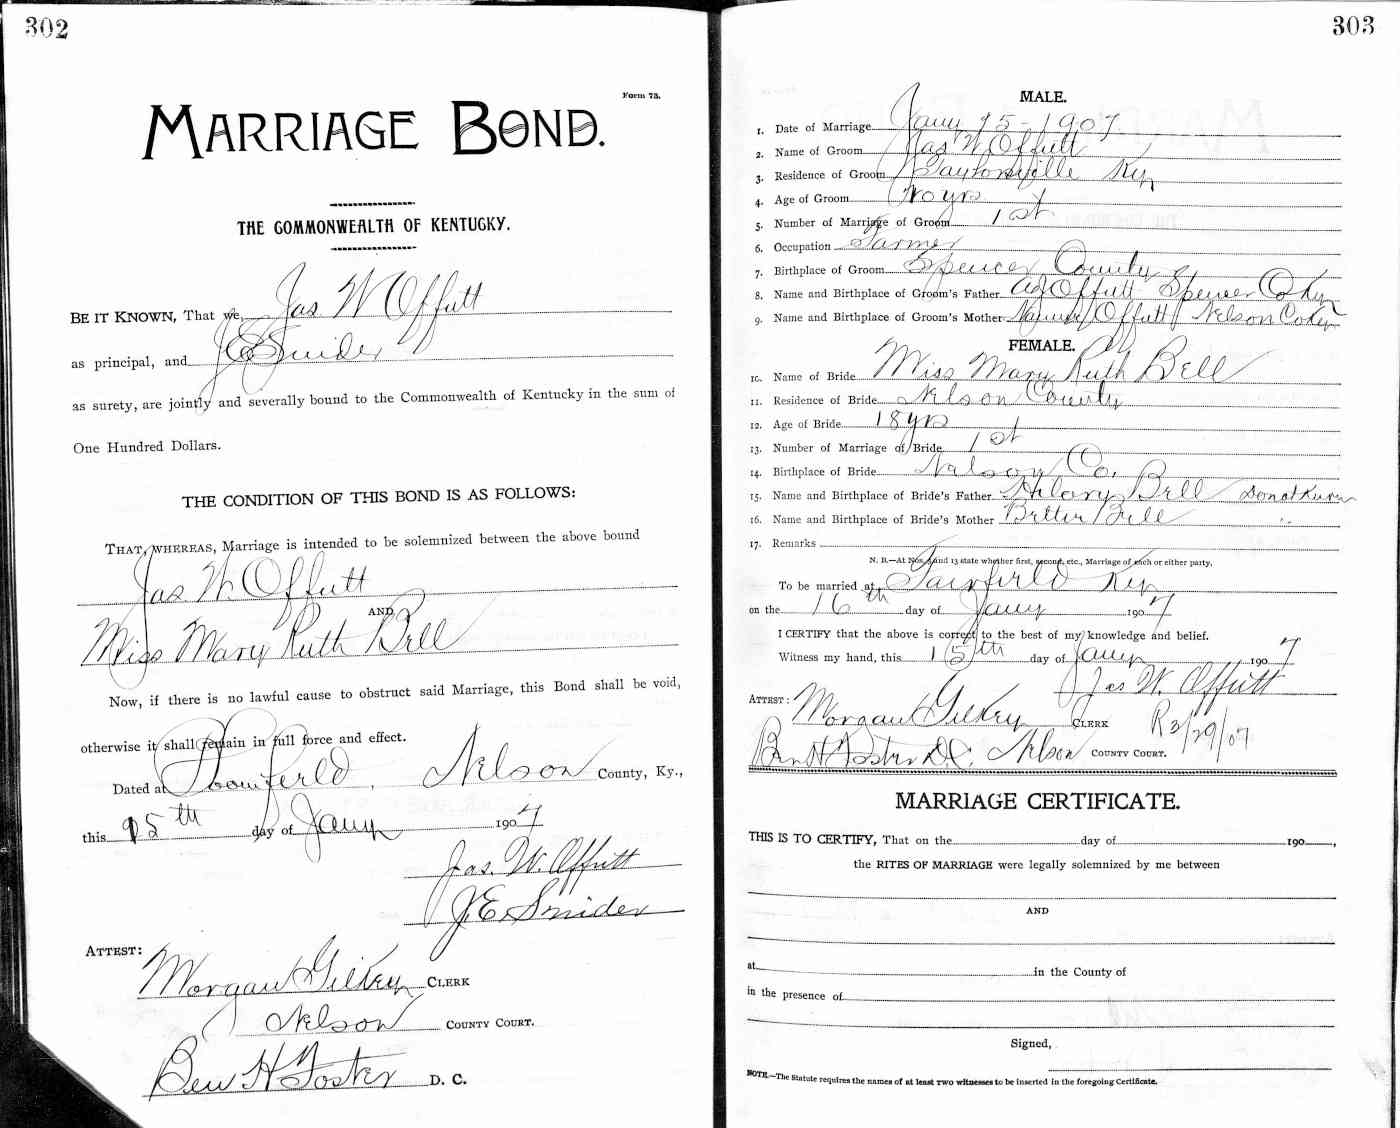 302
Form 73.
MARRIAGE BOND.
THE COMMONWEALTH OF KENTUCKY.
BE IT KNOWN, That we, Jas W Offutt
as principal, and J E Snider
as surety, are jointly and severally bound to the Commonwealth of Kentucky in the sum of
One Hundred Dollars.
THE CONDITION OF THIS BOND IS AS FOLLOWS:
THAT, WHEREAS, Marriage is intended to be solemnized between the above bound
Jas. W. Offutt
AND
Miss Mary Ruth Bell
Now, if there is no lawful cause to obstruct said Marriage, this Bond shall be void,
otherwise it shall remain in full force and effect.
Dated at Bloomfield, Nelson County, Ky.,
this 15th day of Jany 1907
Jas. W. Offutt
J. E. Snider
ATTEST:
Morgan Gilkey CLERK
Nelson COUNTY COURT.
Ben H Foster D. C.
303
MALE.
1. Date of Marriage Jany 15-1907
2. Name of Groom Jas W. Offutt
3. Residence of Groom Taylorsville Ky
4. Age of Groom yrs
5. Number of Marriage of Groom 1st
6. Occupation Farmer
7. Birthplace of Groom Spencer County
8. Name and Birthplace of Groom's Father Offutt Spencer Co Ky
9. Name and Birthplace of Groom's Mother Offutt Nelson Co Ky
FEMALE.
10. Name of Bride Miss Mary Ruth Bell
11. Residence of Bride Nelson County
12. Age of Bride 18 yrs
13. Number of Marriage of Bride 1st
14. Birthplace of Bride Nelson Co.
15. Name and Birthplace of Bride's Father Hilary Bell Donot Know
16. Name and Birthplace of Bride's Mother Bettie Bell "
17. Remarks
N. B.—At Nos. 5 and 13 state whether first, second, etc., Marriage of each or either party.
To be married at Fairfield Ky
on the 16th day of Jany 1907
I CERTIFY that the above is correct to the best of my knowledge and belief.
Witness my hand, this 15th day of Jany 1907
Jas W. Offutt
ATTEST:
Morgan Gilkey CLERK R 3/29/07
Ben H Foster D.C. Nelson COUNTY COURT.
MARRIAGE CERTIFICATE.
THIS IS TO CERTIFY, That on the day of 190 ,
the RITES OF MARRIAGE were legally solemnized by me between
AND
at in the County of
in the presence of
Signed,
NOTE.—The Statute requires the names of at least two witnesses to be inserted in the foregoing Certificate.